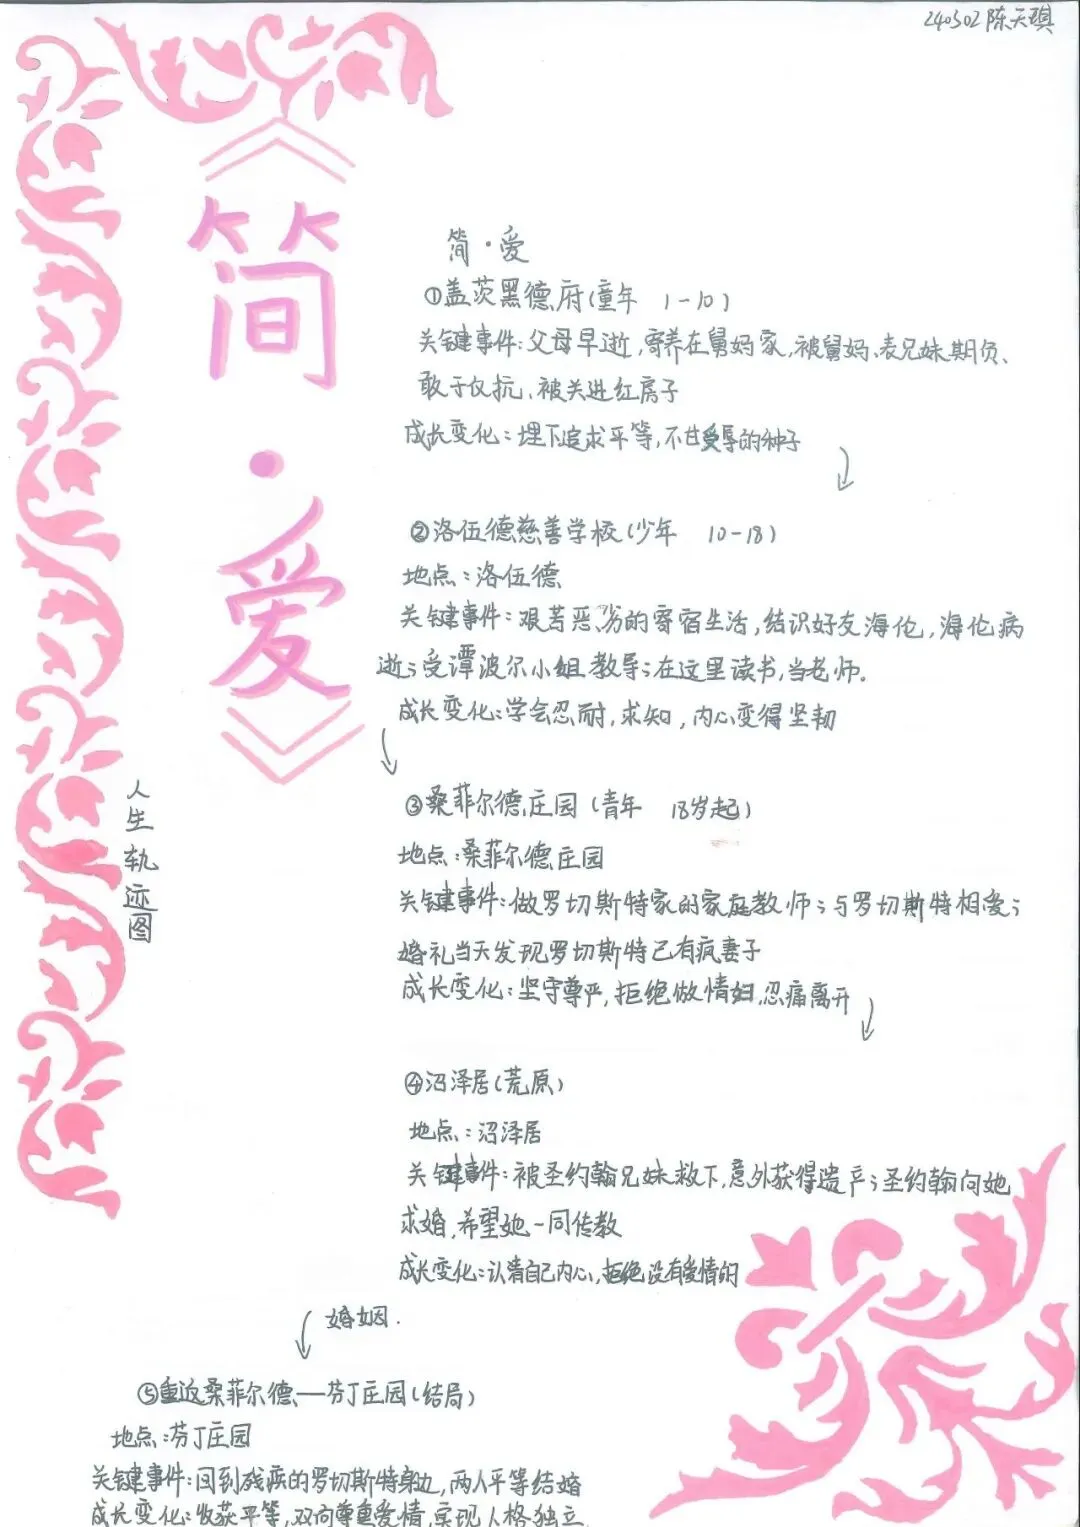 240302陈天琪
《简·爱》
人生轨迹图
简·爱
①盖茨黑德府(童年 1-10)
关键事件:父母早逝,寄养在舅妈家,被舅妈、表兄妹期负、
敢于仅抗、被关进红房子
成长变化:埋下追求平等,不甘受辱的种子
②洛伍德慈善学校(少年 10-18)
地点:洛伍德
关键事件:艰苦恶劣的寄宿生活,结识好友海伦,海伦病
逝;受谭波尔小姐教导;在这里读书,当老师.
成长变化:学会忍耐,求知,内心变得坚韧
③桑菲尔德庄园(青年 18岁起)
地点:桑菲尔德庄园
关键事件:做罗切斯特家的家庭教师;与罗切斯特相爱;
婚礼当天发现罗切斯特已有疯妻子
成长变化:坚守尊严,拒绝做情妇,忍痛离开
④沼泽居(荒原)
地点:沼泽居
关键事件:被圣约翰兄妹救下,意外获得遗产;圣约翰向她
求婚,希望她一同传教
成长变化:认清自己内心,拒绝没有爱情的
婚姻.
⑤重返桑菲尔德——芬丁庄园(结局)
地点:芬丁庄园
关键事件:回到残疾的罗切斯特身边,两人平等结婚
成长变化:收获平等,双向尊重爱情,实现人格独立